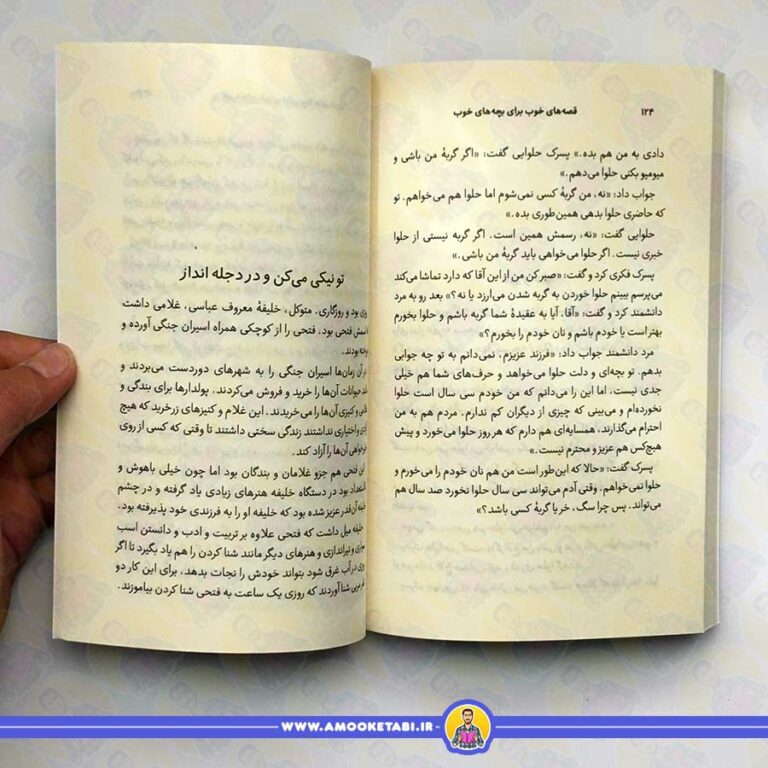 ۱۲۴
قصه‌های خوب برای بچه‌های خوب
دادی به من هم بده.» پسرک حلوایی گفت: «اگر گربهٔ من باشی و
میومیو بکنی حلوا می‌دهم.»
جواب داد: «نه، من گربهٔ کسی نمی‌شوم اما حلوا هم می‌خواهم. تو
که حاضری حلوا بدهی همین‌طوری بده.»
حلوایی گفت: «نه، رسمش همین است. اگر گربه نیستی از حلوا
خبری نیست. اگر حلوا می‌خواهی باید گربهٔ من باشی.»
پسرک فکری کرد و گفت: «صبر کن من از این آقا که دارد تماشا می‌کند
می‌پرسم ببینم حلوا خوردن به گربه شدن می‌ارزد یا نه؟» بعد رو به مرد
دانشمند کرد و گفت: «آقا، آیا به عقیدهٔ شما گربه باشم و حلوا بخورم
بهتر است یا خودم باشم و نان خودم را بخورم؟»
مرد دانشمند جواب داد: «فرزند عزیزم، نمی‌دانم به تو چه جوابی
بدهم. تو بچه‌ای و دلت حلوا می‌خواهد و حرف‌های شما هم خیلی
جدی نیست، اما این را می‌دانم که من خودم سی سال است حلوا
نخورده‌ام و می‌بینی که چیزی از دیگران کم ندارم. مردم هم به من
احترام می‌گذارند، همسایه‌ای هم دارم که هر روز حلوا می‌خورد و پیش
هیچ‌کس هم عزیز و محترم نیست.»
پسرک گفت: «حالا که این‌طور است من هم نان خودم را می‌خورم و
حلوا نمی‌خواهم. وقتی آدم می‌تواند سی سال حلوا نخورد صد سال هم
می‌تواند. پس چرا سگ، خر یا گربهٔ کسی باشد؟»
تو نیکی می‌کن و در دجله انداز
بود و روزگاری. متوکل، خلیفهٔ معروف عباسی، غلامی داشت
اسمش فتحی بود، فتحی را از کوچکی همراه اسیران جنگی آورده و
بودند.
آن زمان‌ها اسیران جنگی را به شهرهای دوردست می‌بردند و
حیوانات آن‌ها را خرید و فروش می‌کردند. پولدارها برای بندگی و
و کنیزی آن‌ها را می‌خریدند. این غلام و کنیزهای زرخرید که هیچ
و اختیاری نداشتند زندگی سختی داشتند تا وقتی که کسی از روی
آن‌ها را آزاد کند.
این فتحی هم جزو غلامان و بندگان بود اما چون خیلی باهوش و
بود در دستگاه خلیفه هنرهای زیادی یاد گرفته و در چشم
آن‌قدر عزیز شده بود که خلیفه او را به فرزندی خود پذیرفته بود.
خلیفه میل داشت که فتحی علاوه بر تربیت و ادب و دانستن اسب
و تیراندازی و هنرهای دیگر مانند شنا کردن را هم یاد بگیرد تا اگر
در آب غرق شود بتواند خودش را نجات بدهد، برای این کار دو
شنا آوردند که روزی یک ساعت به فتحی شنا کردن بیاموزند.
WWW.AMOOKETABI.IR